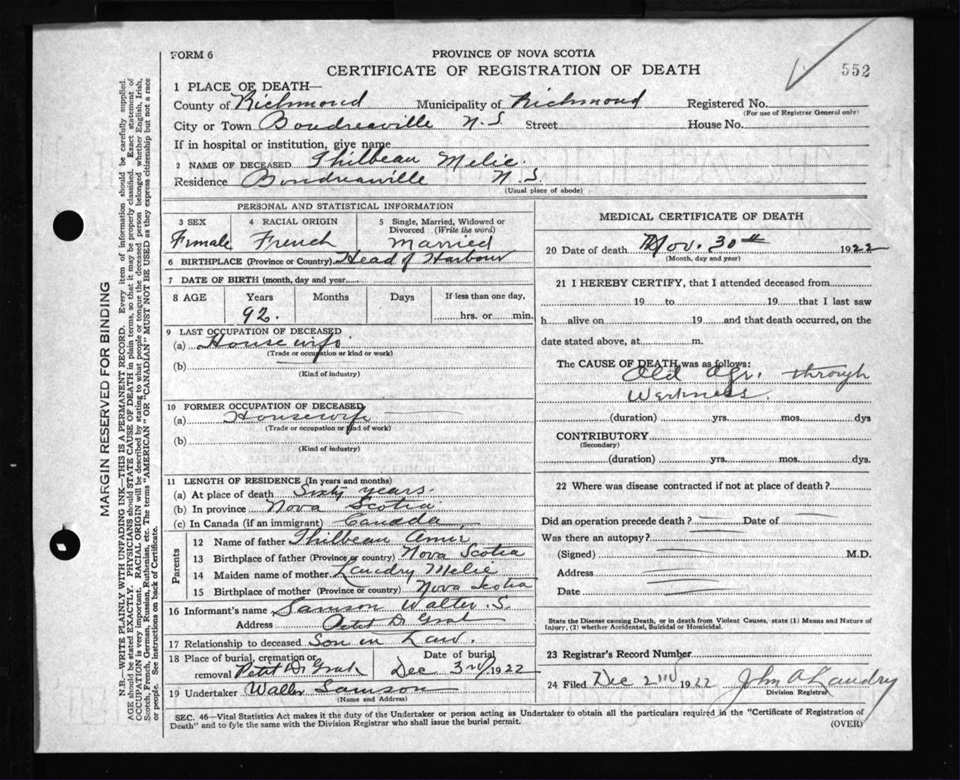 FORM 6
PROVINCE OF NOVA SCOTIA
CERTIFICATE OF REGISTRATION OF DEATH
552
1 PLACE OF DEATH—
County of Richmond Municipality of Richmond Registered No.
(For use of Registrar General only)
City or Town Boudreauville N.S Street House No.
If in hospital or institution, give name
2 NAME OF DECEASED Thilbeau Melie.
Residence Boudreauville N.S.
(Usual place of abode)
PERSONAL AND STATISTICAL INFORMATION
3 SEX 4 RACIAL ORIGIN 5 Single, Married, Widowed or Divorced (Write the word)
Female French Married
6 BIRTHPLACE (Province or Country) Head of Harbour
7 DATE OF BIRTH (month, day and year)
8 AGE Years Months Days If less than one day,
92. hrs. or min.
9 LAST OCCUPATION OF DECEASED
(a) Housewife
(Trade or occupation or kind or work)
(b)
(Kind of industry)
10 FORMER OCCUPATION OF DECEASED
(a) Housewife
(Trade or occupation or kind of work)
(b)
(Kind of industry)
11 LENGTH OF RESIDENCE (In years and months)
(a) At place of death Sixty years.
(b) In province Nova Scotia
(c) In Canada (if an immigrant) Canada
Parents
12 Name of father Thilbeau
13 Birthplace of father (Province or country) Nova Scotia
14 Maiden name of mother Landry Melie
15 Birthplace of mother (Province or country) Nova Scotia
16 Informant's name Samson Walter. S.
Address Petit De Grat
17 Relationship to deceased Son in Law.
18 Place of burial, cremation or removal Petit De Grat Date of burial Dec 3rd 1922
19 Undertaker Walter Samson
(Name and Address)
MEDICAL CERTIFICATE OF DEATH
20 Date of death Nov. 30th 1922
(Month, day and year)
21 I HEREBY CERTIFY, that I attended deceased from
19 to 19 that I last saw
h alive on 19 and that death occurred, on the
date stated above, at m.
The CAUSE OF DEATH was as follows:
Old Age. through
Weakness.
(duration) yrs. mos. dys
CONTRIBUTORY
(Secondary)
(duration) yrs. mos. dys.
22 Where was disease contracted if not at place of death?
Did an operation precede death? Date of
Was there an autopsy?
(Signed) M.D.
Address
Date
State the Disease causing Death, or in death from Violent Causes, state (1) Means and Nature of
Injury, (2) whether Accidental, Suicidal or Homicidal.
23 Registrar's Record Number
24 Filed Dec 2nd 1922 John A Landry
Division Registrar
SEC. 46—Vital Statistics Act makes it the duty of the Undertaker or person acting as Undertaker to obtain all the particulars required in the "Certificate of Registration of
Death" and to fyle the same with the Division Registrar who shall issue the burial permit.
(OVER)
MARGIN RESERVED FOR BINDING
N.B.—WRITE PLAINLY WITH UNFADING INK—THIS IS A PERMANENT RECORD. Every item of information should be carefully supplied.
AGE should be stated EXACTLY. PHYSICIANS should STATE CAUSE OF DEATH in plain terms, so that it may be properly classified. Exact statement of
OCCUPATION is very important. RACIAL ORIGIN will be described by stating to what people or tongue the deceased person belonged whether English, Irish,
Scotch, French, German, Russian, Ruthenian, etc. The terms "AMERICAN" OR "CANADIAN" MUST NOT BE USED as they express citizenship but not a race
or people. See instructions on back of Certificate.